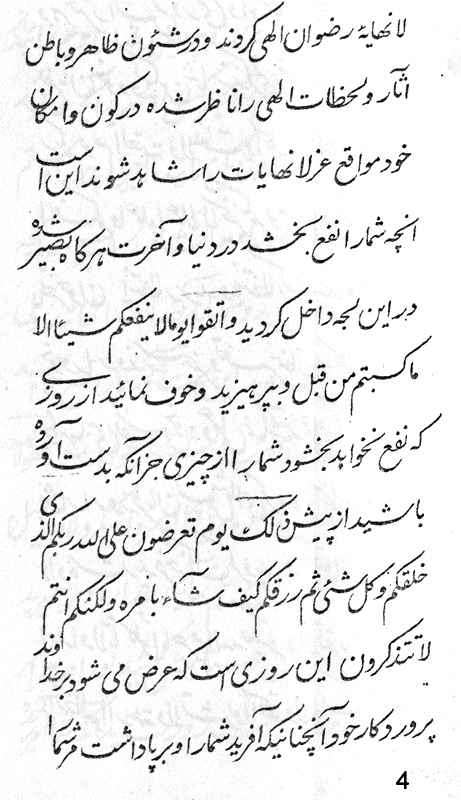 لا نهایهٔ رضوان الهی کردند و در شئون ظاهر و باطن
آثار و لحظات الهی را ناظر شده در کون و امکان
خود مواقع عز لا نهایات را شاهد شوند این است
انچه شما را نفع بخشد در دنیا و آخرت هر کاه بصیر شده
در این لجه داخل کردید و اتقوا یوما لا ینفعکم شیئا الا
ما کسبتم من قبل و بپرهیزید و خوف نمائید از روزی
که نفع نخواهد بخشود شما را از چیزی جز انکه بدست آورده
باشید از پیش ذلک یوم تعرضون علی الله ربکم الذی
خلقکم و کل شئی ثم رزقکم کیف شاء بامره و لکنکم انتم
لا تتذکرون این روزی است که عرض می شود بر خداوند
پروردکار خود آنچنانیکه آفرید شما را و بر پا داشت مر شما را
4